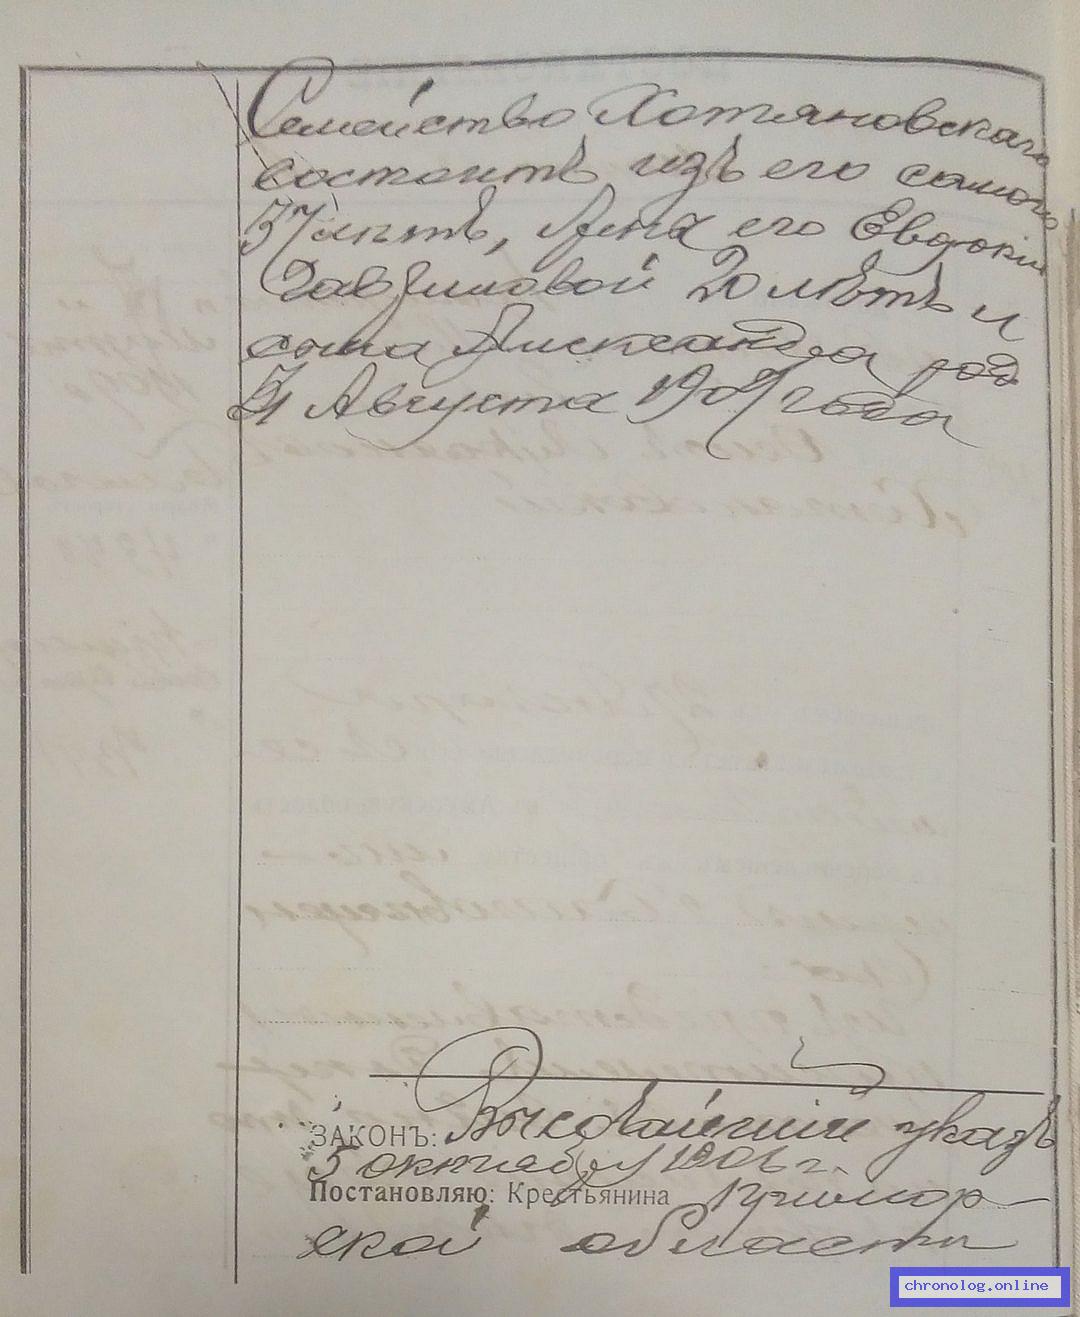 Семейство Хотяновскаго
состоитъ изъ его самого
37 лѣтъ, жена его Евдокии
Давыдовой 20 лѣтъ и
сына Александра род
Августа 1909 года
ЗАКОНЪ: Высочайший указъ
5 октября 1906 г.
Постановляю: Крестьянина Примор
ской области
chronolog.online